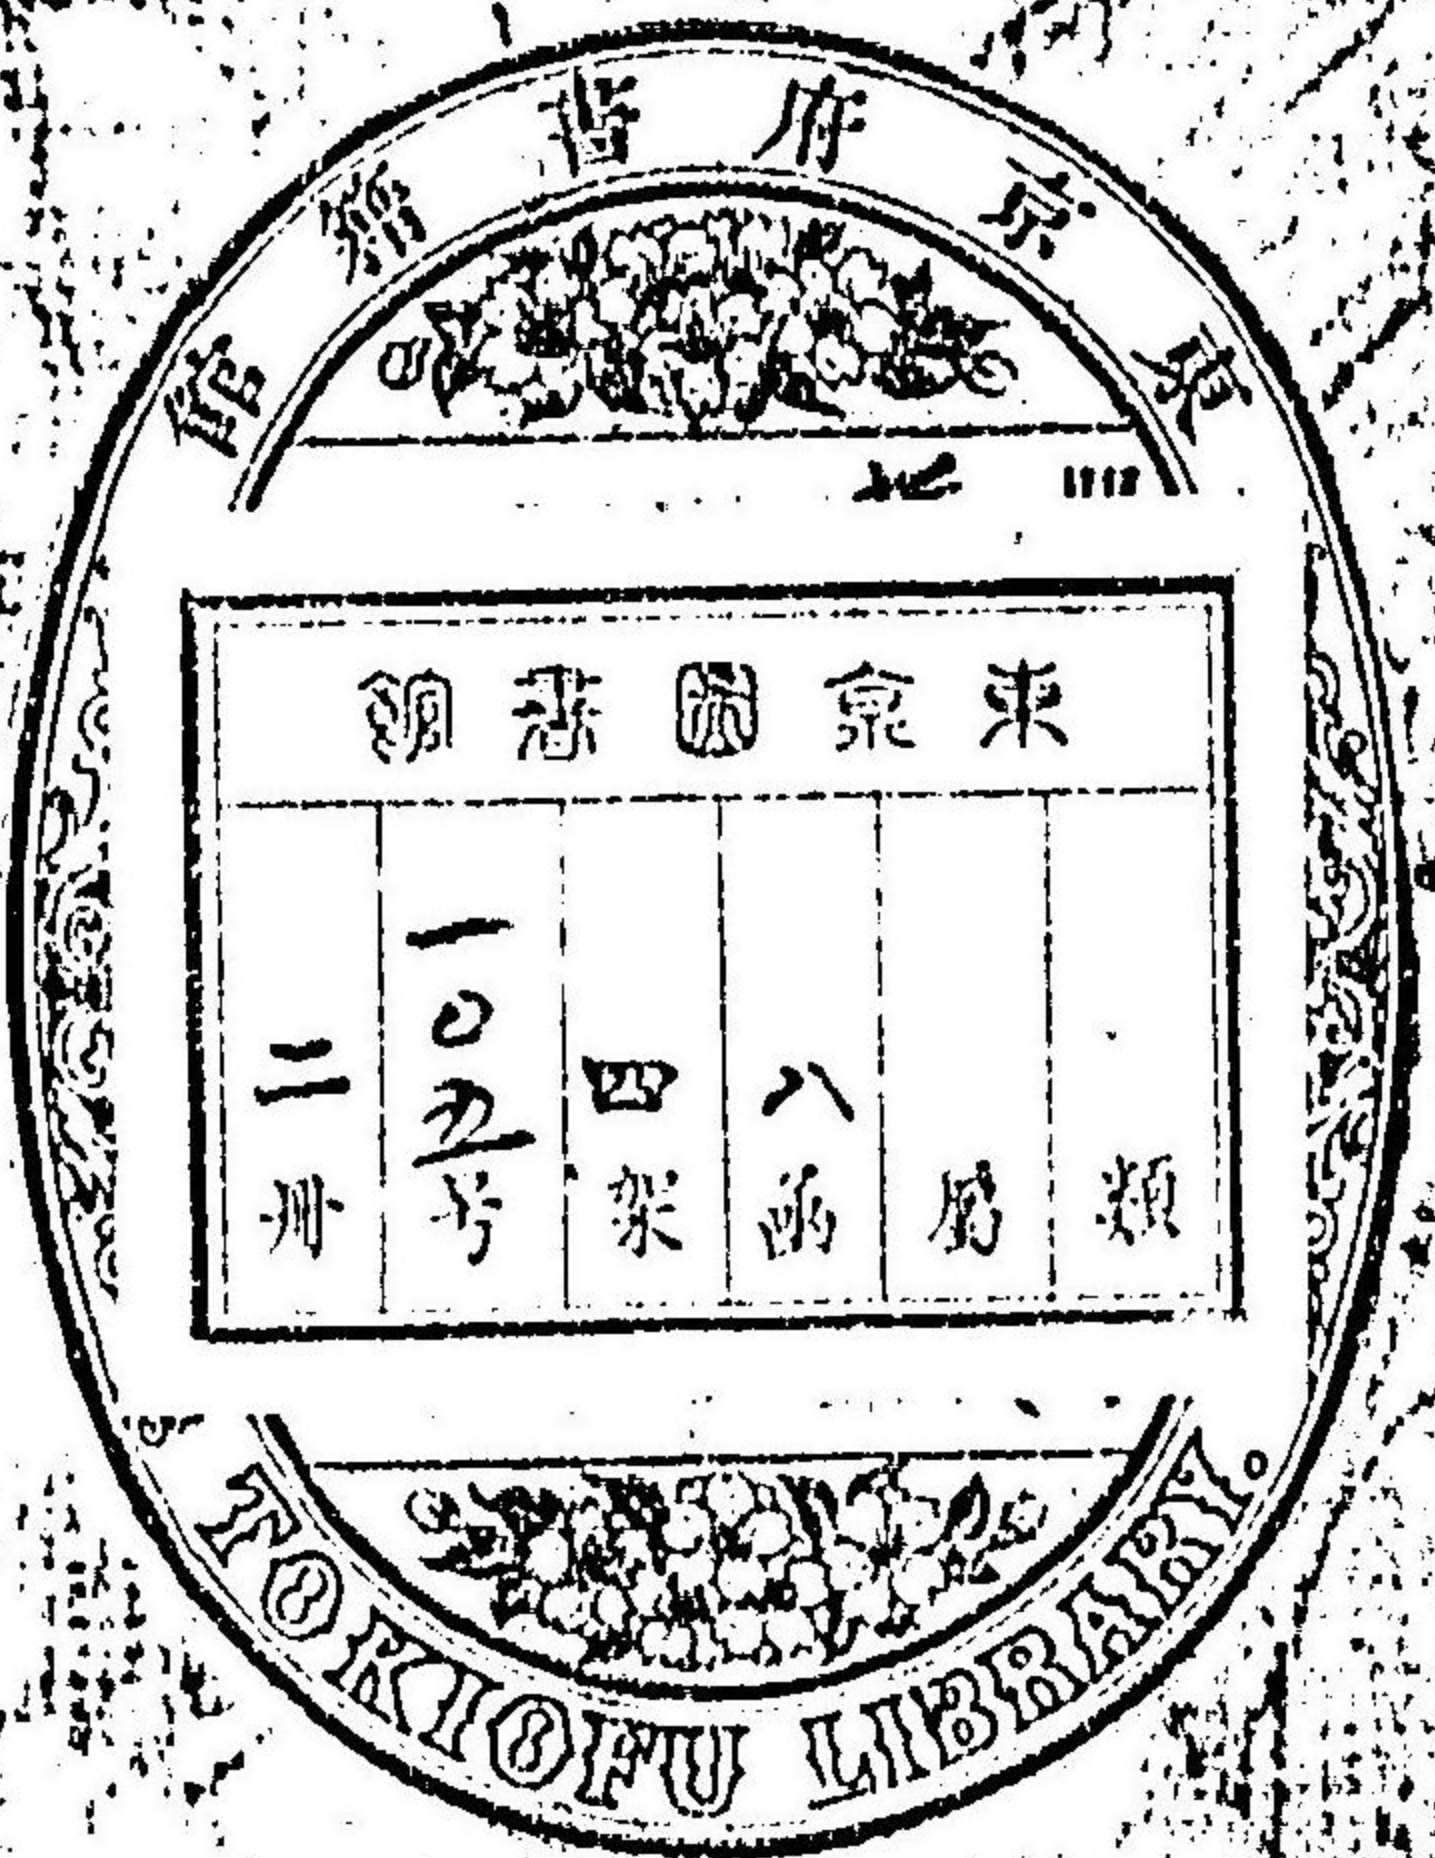 東京府書籍館
東京圖書館
類
属
八函
四架
一〇五号
二冊
TOKIOFU LIBRARY.